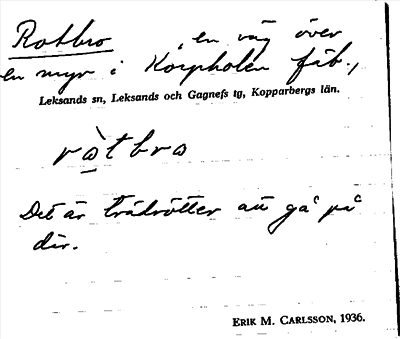 Rotbro, en väg över
en myr i Korpholen fäb.,
Leksands sn, Leksands och Gagnefs tg, Kopparbergs län.
ròtbro
Det är trädrötter att gå på
där.
ERIK M. CARLSSON, 1936.